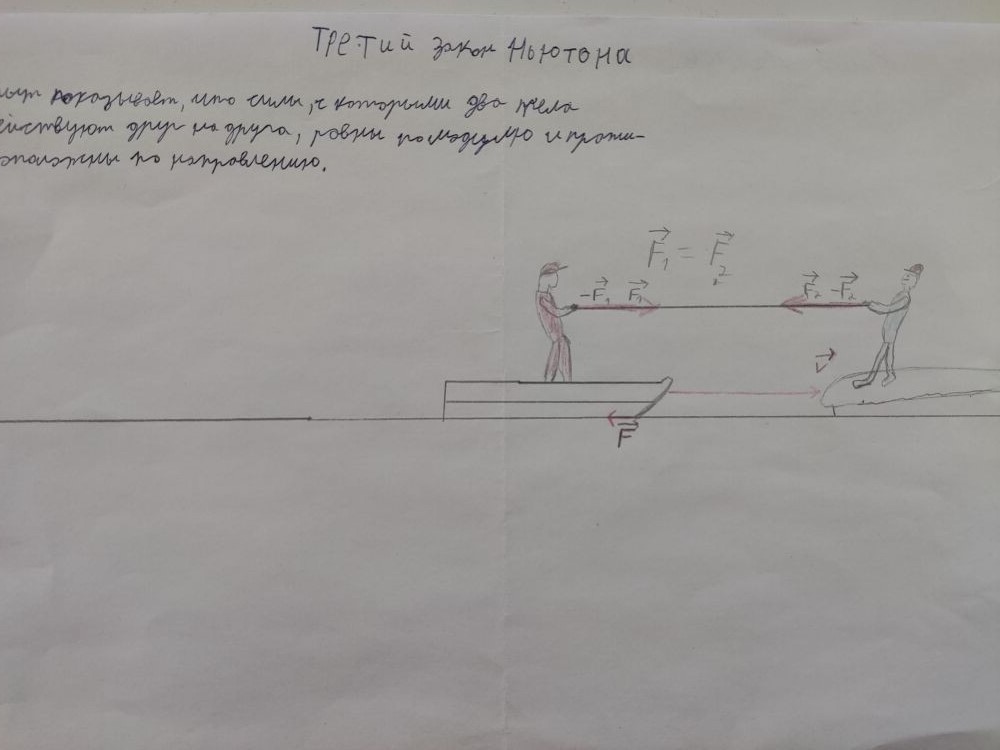 Третий закон Ньютона
ыт показывает, что силы, с которыми два тела
ействуют друг на друга, равны по модулю и проти-
воположны по направлению.
F₁ = F₂
-F₁ F₁
F₂ -F₂
V
F